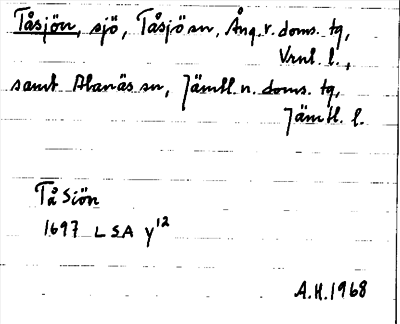 Tåsjön, sjö, Tåsjö sn, Ång. v. doms. tg,
Vrnl. l.,
samt Alanäs sn, Jämtl. n. doms. tg,
Jämtl. l.
Tå Siön
1697 LSA y12
A.H. 1968